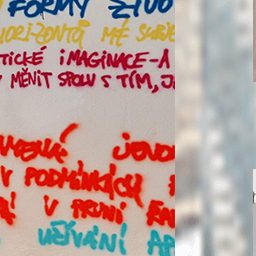 FORMY ŽIVO
HORIZONTŮ MÉ SUBJE
TICKÉ iMAGiNACE-A
MĚNIT SPOLU S TÍM, J
JEVO
V PODMÍNKÁCH
V PRVNÍ FA
UŽÍVÁNÍ AP